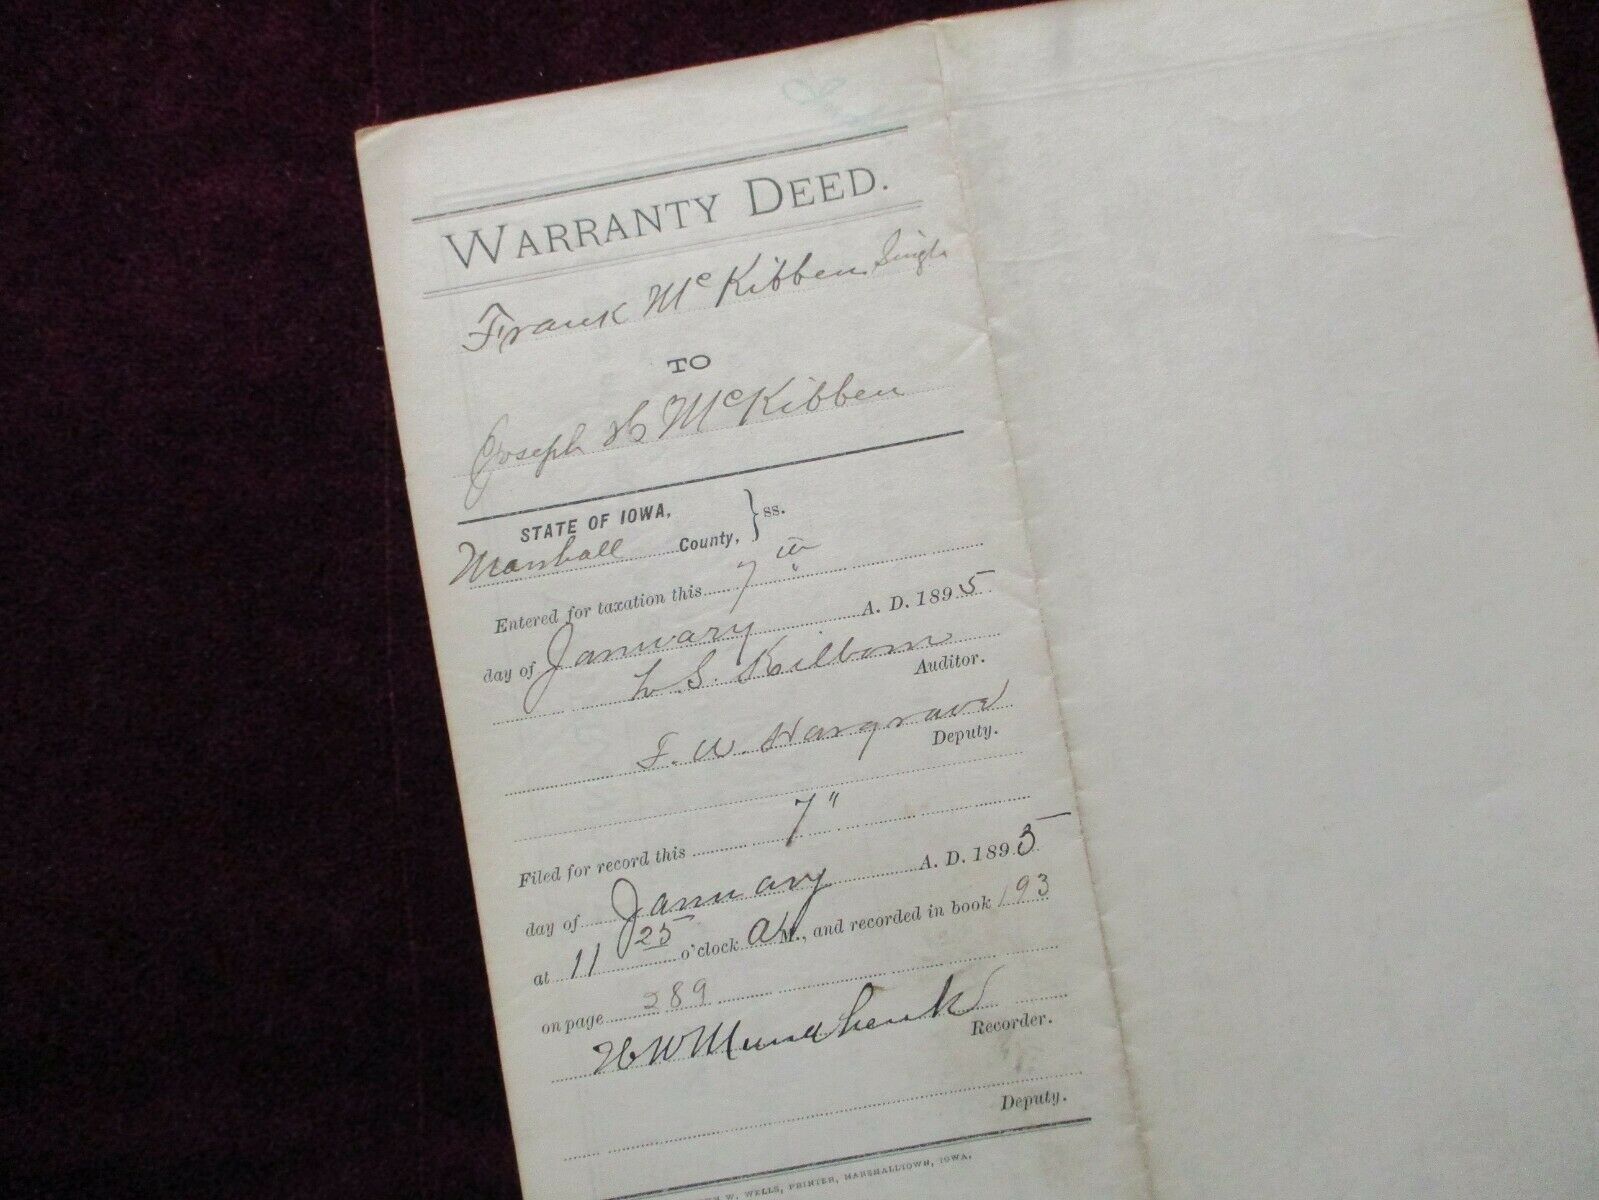 WARRANTY DEED.
Frank McKibben Single
TO
Joseph H McKibben
STATE OF IOWA,
Marshall County, } ss.
Entered for taxation this 7th
day of January A. D. 1895
L S. Kilborn
Auditor.
F. W. Hargrave
Deputy.
Filed for record this 7"
day of January A. D. 1895
at 11 25 o'clock A M., and recorded in book 193
on page 289
H W Mundhenk
Recorder.
Deputy.
W. WELLS, PRINTER, MARSHALLTOWN, IOWA.